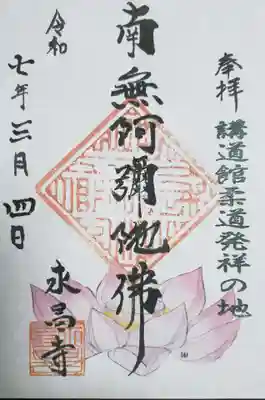 奉拝 講道館柔道発祥の地
南無阿彌陀佛
永昌寺
令和
七年三月四日